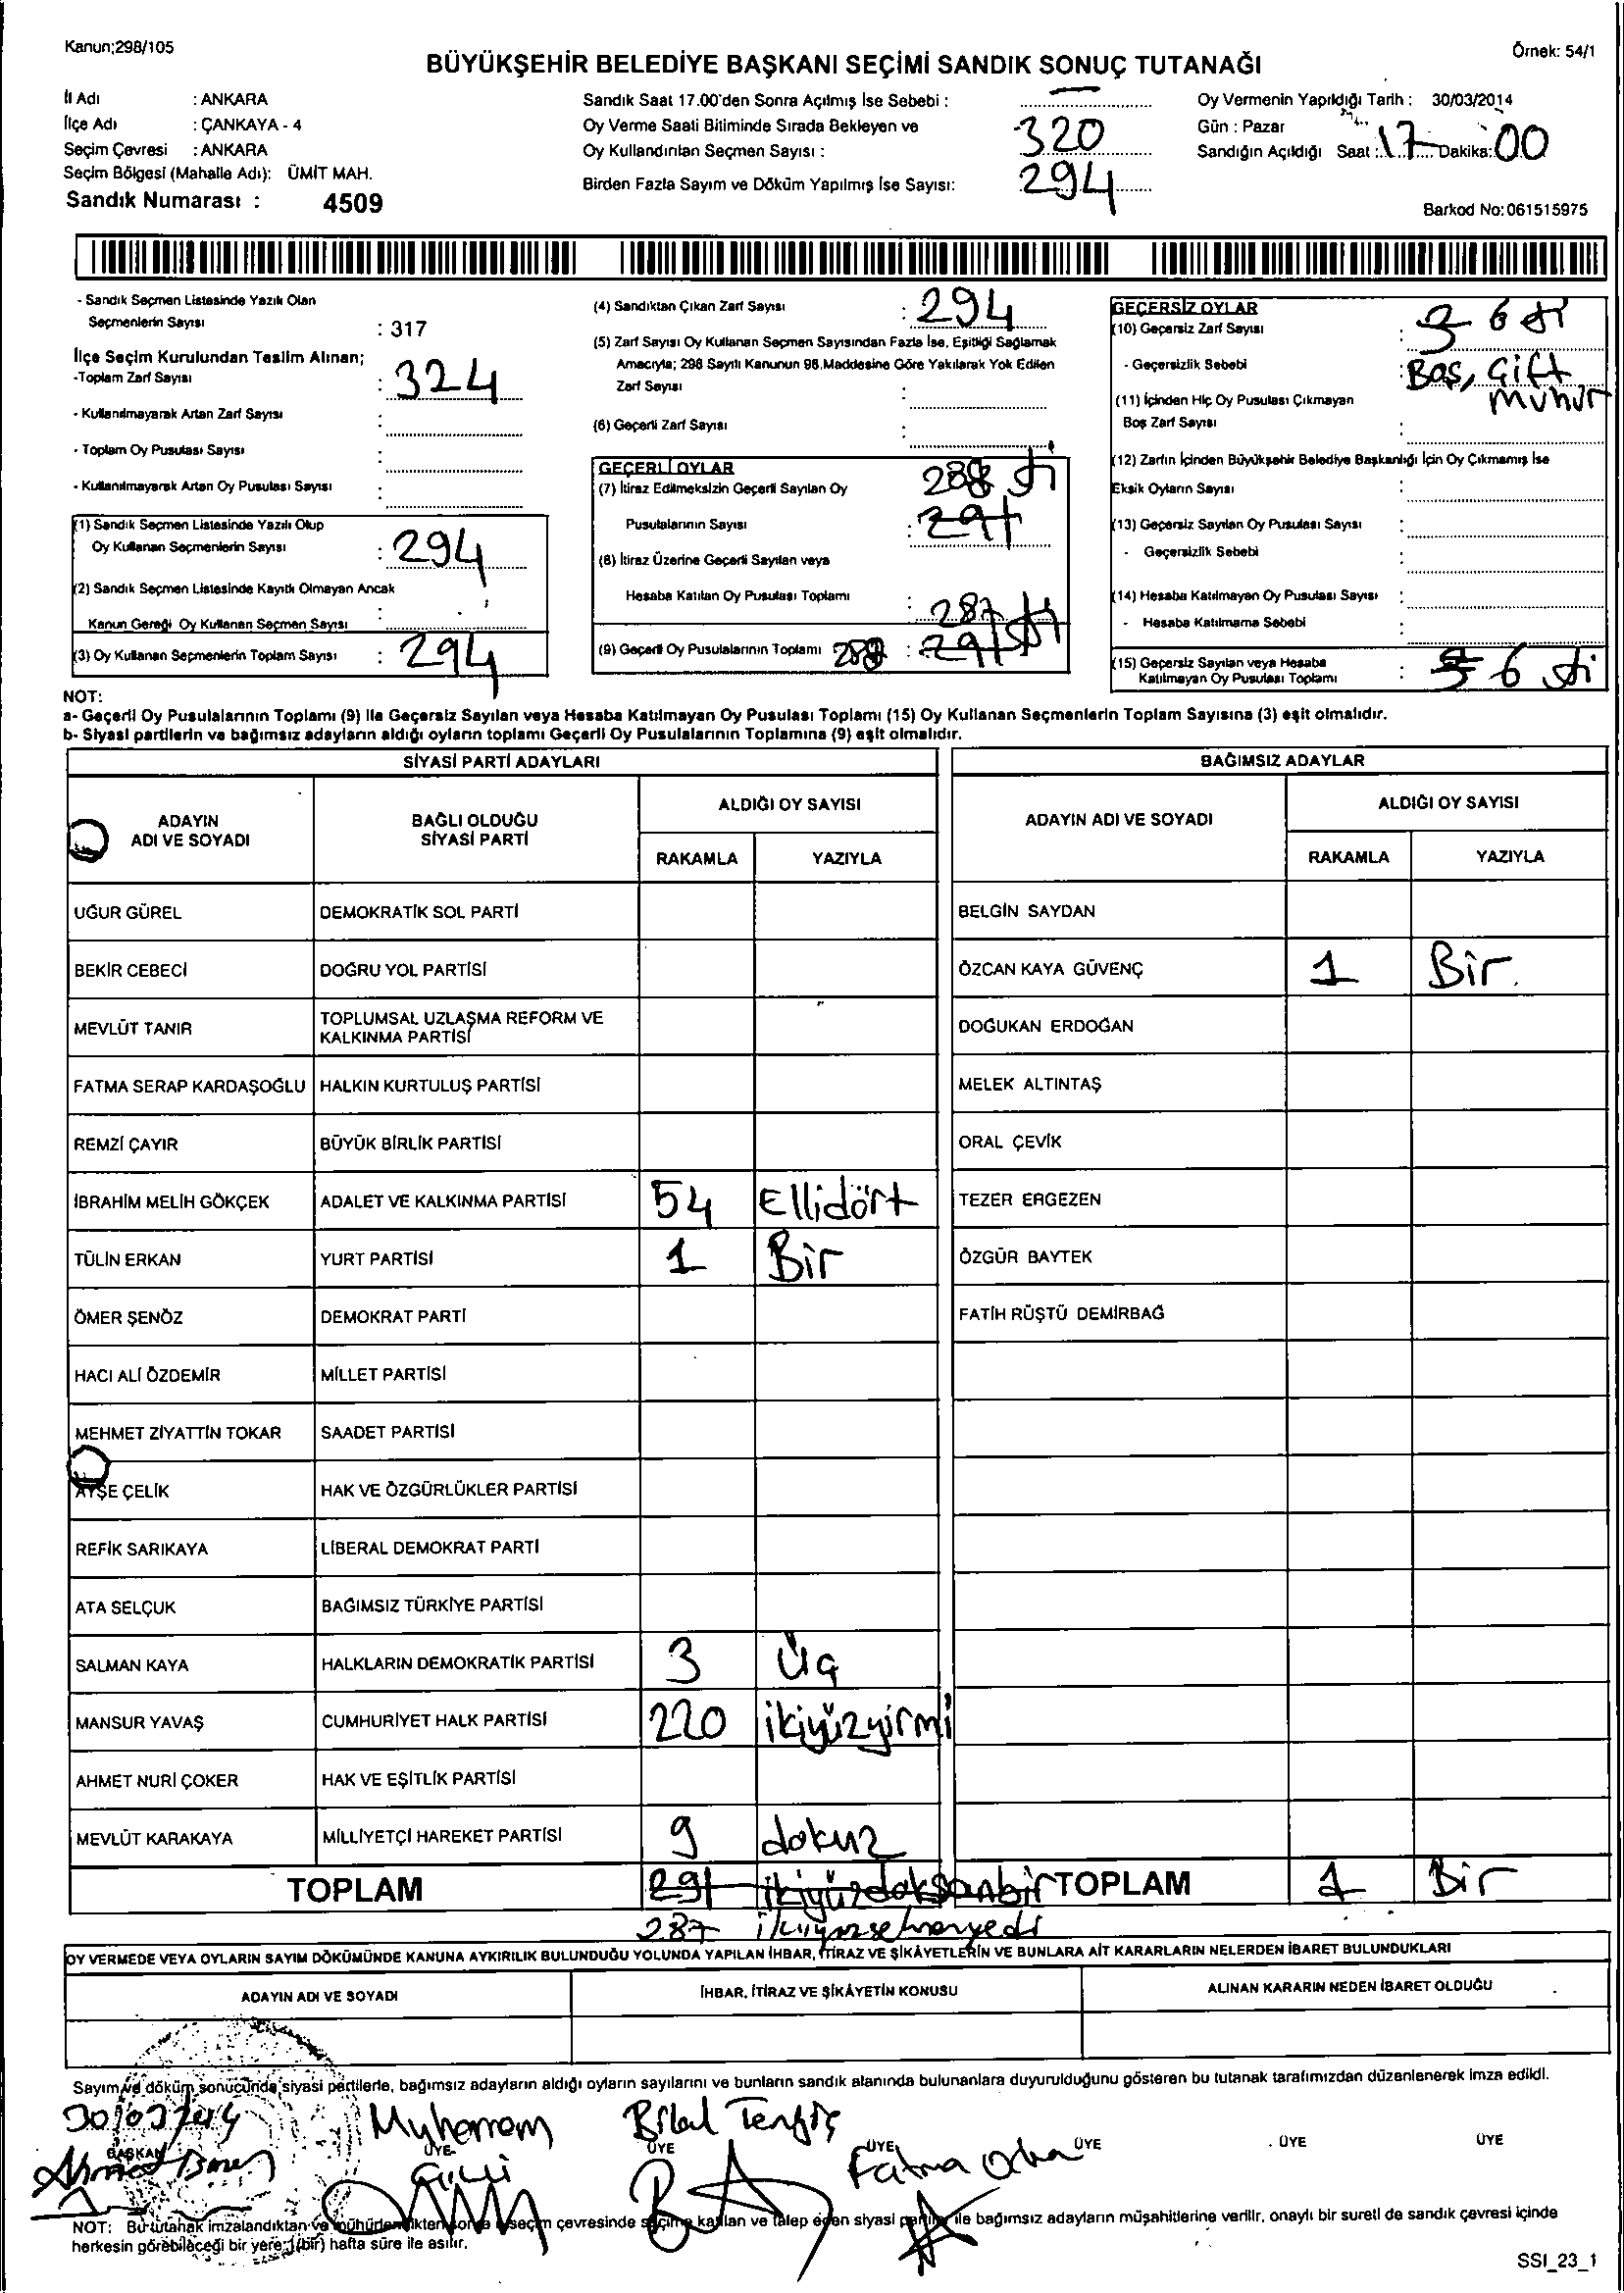 Kanun;298/105
Örnek: 54/1
BÜYÜKŞEHİR BELEDİYE BAŞKANI SEÇİMİ SANDIK SONUÇ TUTANAĞI
İl Adı : ANKARA
İlçe Adı : ÇANKAYA - 4
Seçim Çevresi : ANKARA
Seçim Bölgesi (Mahalle Adı): ÜMİT MAH.
Sandık Numarası : 4509
Sandık Saat 17.00'den Sonra Açılmış İse Sebebi :
Oy Verme Saati Bitiminde Sırada Bekleyen ve
Oy Kullandırılan Seçmen Sayısı : 320
Birden Fazla Sayım ve Döküm Yapılmış İse Sayısı: 294
Oy Vermenin Yapıldığı Tarih : 30/03/2014
Gün : Pazar
Sandığın Açıldığı Saat : 17 Dakika: 00
Barkod No:061515975
- Sandık Seçmen Listesinde Yazılı Olan
Seçmenlerin Sayısı : 317
İlçe Seçim Kurulundan Teslim Alınan;
-Toplam Zarf Sayısı : 324
- Kullanılmayarak Artan Zarf Sayısı :
- Toplam Oy Pusulası Sayısı :
- Kullanılmayarak Artan Oy Pusulası Sayısı :
(1) Sandık Seçmen Listesinde Yazılı Olup
Oy Kullanan Seçmenlerin Sayısı : 294
(2) Sandık Seçmen Listesinde Kayıtlı Olmayan Ancak
Kanun Gereği Oy Kullanan Seçmen Sayısı :
(3) Oy Kullanan Seçmenlerin Toplam Sayısı : 294
(4) Sandıktan Çıkan Zarf Sayısı : 294
(5) Zarf Sayısı Oy Kullanan Seçmen Sayısından Fazla İse, Eşitliği Sağlamak
Amacıyla; 298 Sayılı Kanunun 98.Maddesine Göre Yakılarak Yok Edilen
Zarf Sayısı :
(6) Geçerli Zarf Sayısı :
GEÇERLİ OYLAR
(7) İtiraz Edilmeksizin Geçerli Sayılan Oy
Pusulalarının Sayısı : 291
(8) İtiraz Üzerine Geçerli Sayılan veya
Hesaba Katılan Oy Pusulası Toplamı : 287
(9) Geçerli Oy Pusulalarının Toplamı : 291
GEÇERSİZ OYLAR
(10) Geçersiz Zarf Sayısı : 3 6
- Geçersizlik Sebebi : Boş, Çift
mühür
(11) İçinden Hiç Oy Pusulası Çıkmayan
Boş Zarf Sayısı :
(12) Zarfın İçinden Büyükşehir Belediye Başkanlığı İçin Oy Çıkmamış İse
Eksik Oyların Sayısı :
(13) Geçersiz Sayılan Oy Pusulası Sayısı :
- Geçersizlik Sebebi :
(14) Hesaba Katılmayan Oy Pusulası Sayısı :
- Hesaba Katılmama Sebebi :
(15) Geçersiz Sayılan veya Hesaba
Katılmayan Oy Pusulası Toplamı : 3 6
NOT:
a- Geçerli Oy Pusulalarının Toplamı (9) ile Geçersiz Sayılan veya Hesaba Katılmayan Oy Pusulası Toplamı (15) Oy Kullanan Seçmenlerin Toplam Sayısına (3) eşit olmalıdır.
b- Siyasi partilerin ve bağımsız adayların aldığı oyların toplamı Geçerli Oy Pusulalarının Toplamına (9) eşit olmalıdır.
SİYASİ PARTİ ADAYLARI
ADAYIN
ADI VE SOYADI
BAĞLI OLDUĞU
SİYASİ PARTİ
ALDIĞI OY SAYISI
RAKAMLA YAZIYLA
UĞUR GÜREL DEMOKRATİK SOL PARTİ
BEKİR CEBECİ DOĞRU YOL PARTİSİ
MEVLÜT TANIR TOPLUMSAL UZLAŞMA REFORM VE
KALKINMA PARTİSİ
FATMA SERAP KARDAŞOĞLU HALKIN KURTULUŞ PARTİSİ
REMZİ ÇAYIR BÜYÜK BİRLİK PARTİSİ
İBRAHİM MELİH GÖKÇEK ADALET VE KALKINMA PARTİSİ 54 Ellidört
TÜLİN ERKAN YURT PARTİSİ 1 Bir
ÖMER ŞENÖZ DEMOKRAT PARTİ
HACI ALİ ÖZDEMİR MİLLET PARTİSİ
MEHMET ZİYATTİN TOKAR SAADET PARTİSİ
AYŞE ÇELİK HAK VE ÖZGÜRLÜKLER PARTİSİ
REFİK SARIKAYA LİBERAL DEMOKRAT PARTİ
ATA SELÇUK BAĞIMSIZ TÜRKİYE PARTİSİ
SALMAN KAYA HALKLARIN DEMOKRATİK PARTİSİ 3 Üç
MANSUR YAVAŞ CUMHURİYET HALK PARTİSİ 220 ikiyüzyirmi
AHMET NURİ ÇOKER HAK VE EŞİTLİK PARTİSİ
MEVLÜT KARAKAYA MİLLİYETÇİ HAREKET PARTİSİ 9 dokuz
TOPLAM 291 ikiyüzdoksanbir
287 ikiyüzseksenyedi
BAĞIMSIZ ADAYLAR
ADAYIN ADI VE SOYADI
ALDIĞI OY SAYISI
RAKAMLA YAZIYLA
BELGİN SAYDAN
ÖZCAN KAYA GÜVENÇ 1 Bir
DOĞUKAN ERDOĞAN
MELEK ALTINTAŞ
ORAL ÇEVİK
TEZER ERGEZEN
ÖZGÜR BAYTEK
FATİH RÜŞTÜ DEMİRBAĞ
TOPLAM 1 Bir
OY VERMEDE VEYA OYLARIN SAYIM DÖKÜMÜNDE KANUNA AYKIRILIK BULUNDUĞU YOLUNDA YAPILAN İHBAR, İTİRAZ VE ŞİKÂYETLERİN VE BUNLARA AİT KARARLARIN NELERDEN İBARET BULUNDUKLARI
ADAYIN ADI VE SOYADI İHBAR, İTİRAZ VE ŞİKÂYETİN KONUSU ALINAN KARARIN NEDEN İBARET OLDUĞU
Sayım ve döküm sonucunda siyasi partilerle, bağımsız adayların aldığı oyların sayılarını ve bunların sandık alanında bulunanlara duyurulduğunu gösteren bu tutanak tarafımızdan düzenlenerek imza edildi.
Muharrem Bilal
BAŞKAN ÜYE ÜYE ÜYE ÜYE ÜYE ÜYE
Ahmet Fatma
NOT: Bu tutanak imzalandıktan ve mühürlendikten sonra seçim çevresinde seçime katılan ve talep eden siyasi partiler ile bağımsız adayların müşahitlerine verilir, onaylı bir sureti de sandık çevresi içinde
herkesin görebileceği bir yere 1(bir) hafta süre ile asılır.
SSI_23_1